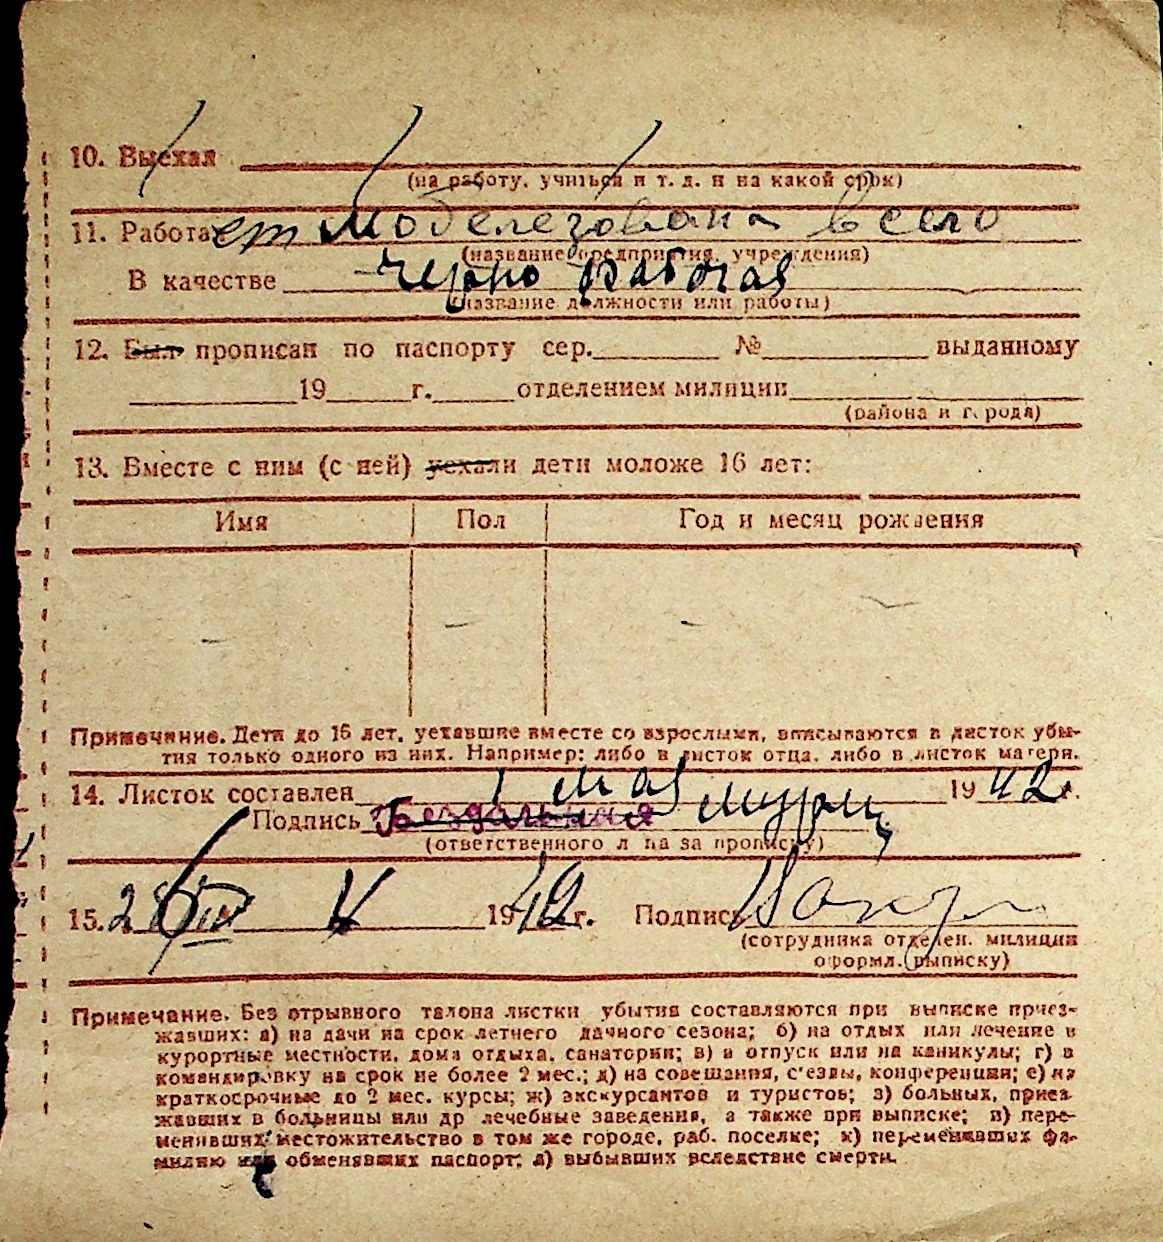 10. Выехал
(на работу, учиться и т. д. и на какой срок)
11. Работает Моделезована всего
(название предприятия, учреждения)
В качестве черно рабочая
(название должности или работы)
12. Был прописан по паспорту сер. № выданному
19 г. отделением милиции
(района и города)
13. Вместе с ним (с ней) уехали дети моложе 16 лет:
Имя Пол Год и месяц рождения
Примечание. Дети до 16 лет, уехавшие вместе со взрослыми, вписываются в листок убы-
тия только одного из них. Например: либо в листок отца, либо в листок матери.
14. Листок составлен 1 мая 1942 г.
Подпись
(ответственного лица за прописку)
15. 28 1942 г. Подпись
(сотрудника отделен. милиции
оформл. выписку)
Примечание. Без отрывного талона листки убытия составляются при выписке приез-
жавших: а) на дачи на срок летнего дачного сезона; б) на отдых или лечение в
курортные местности, дома отдыха, санатории; в) в отпуск или на каникулы; г) в
командировку на срок не более 2 мес.; д) на совещания, с'езды, конференции; е) на
краткосрочные до 2 мес. курсы; ж) экскурсантов и туристов; з) больных, приез-
жавших в больницы или др лечебные заведения, а также при выписке; и) пере-
менивших местожительство в том же городе, раб. поселке; к) переменявших фа-
милию или обменявших паспорт; л) выбывших вследствие смерти.